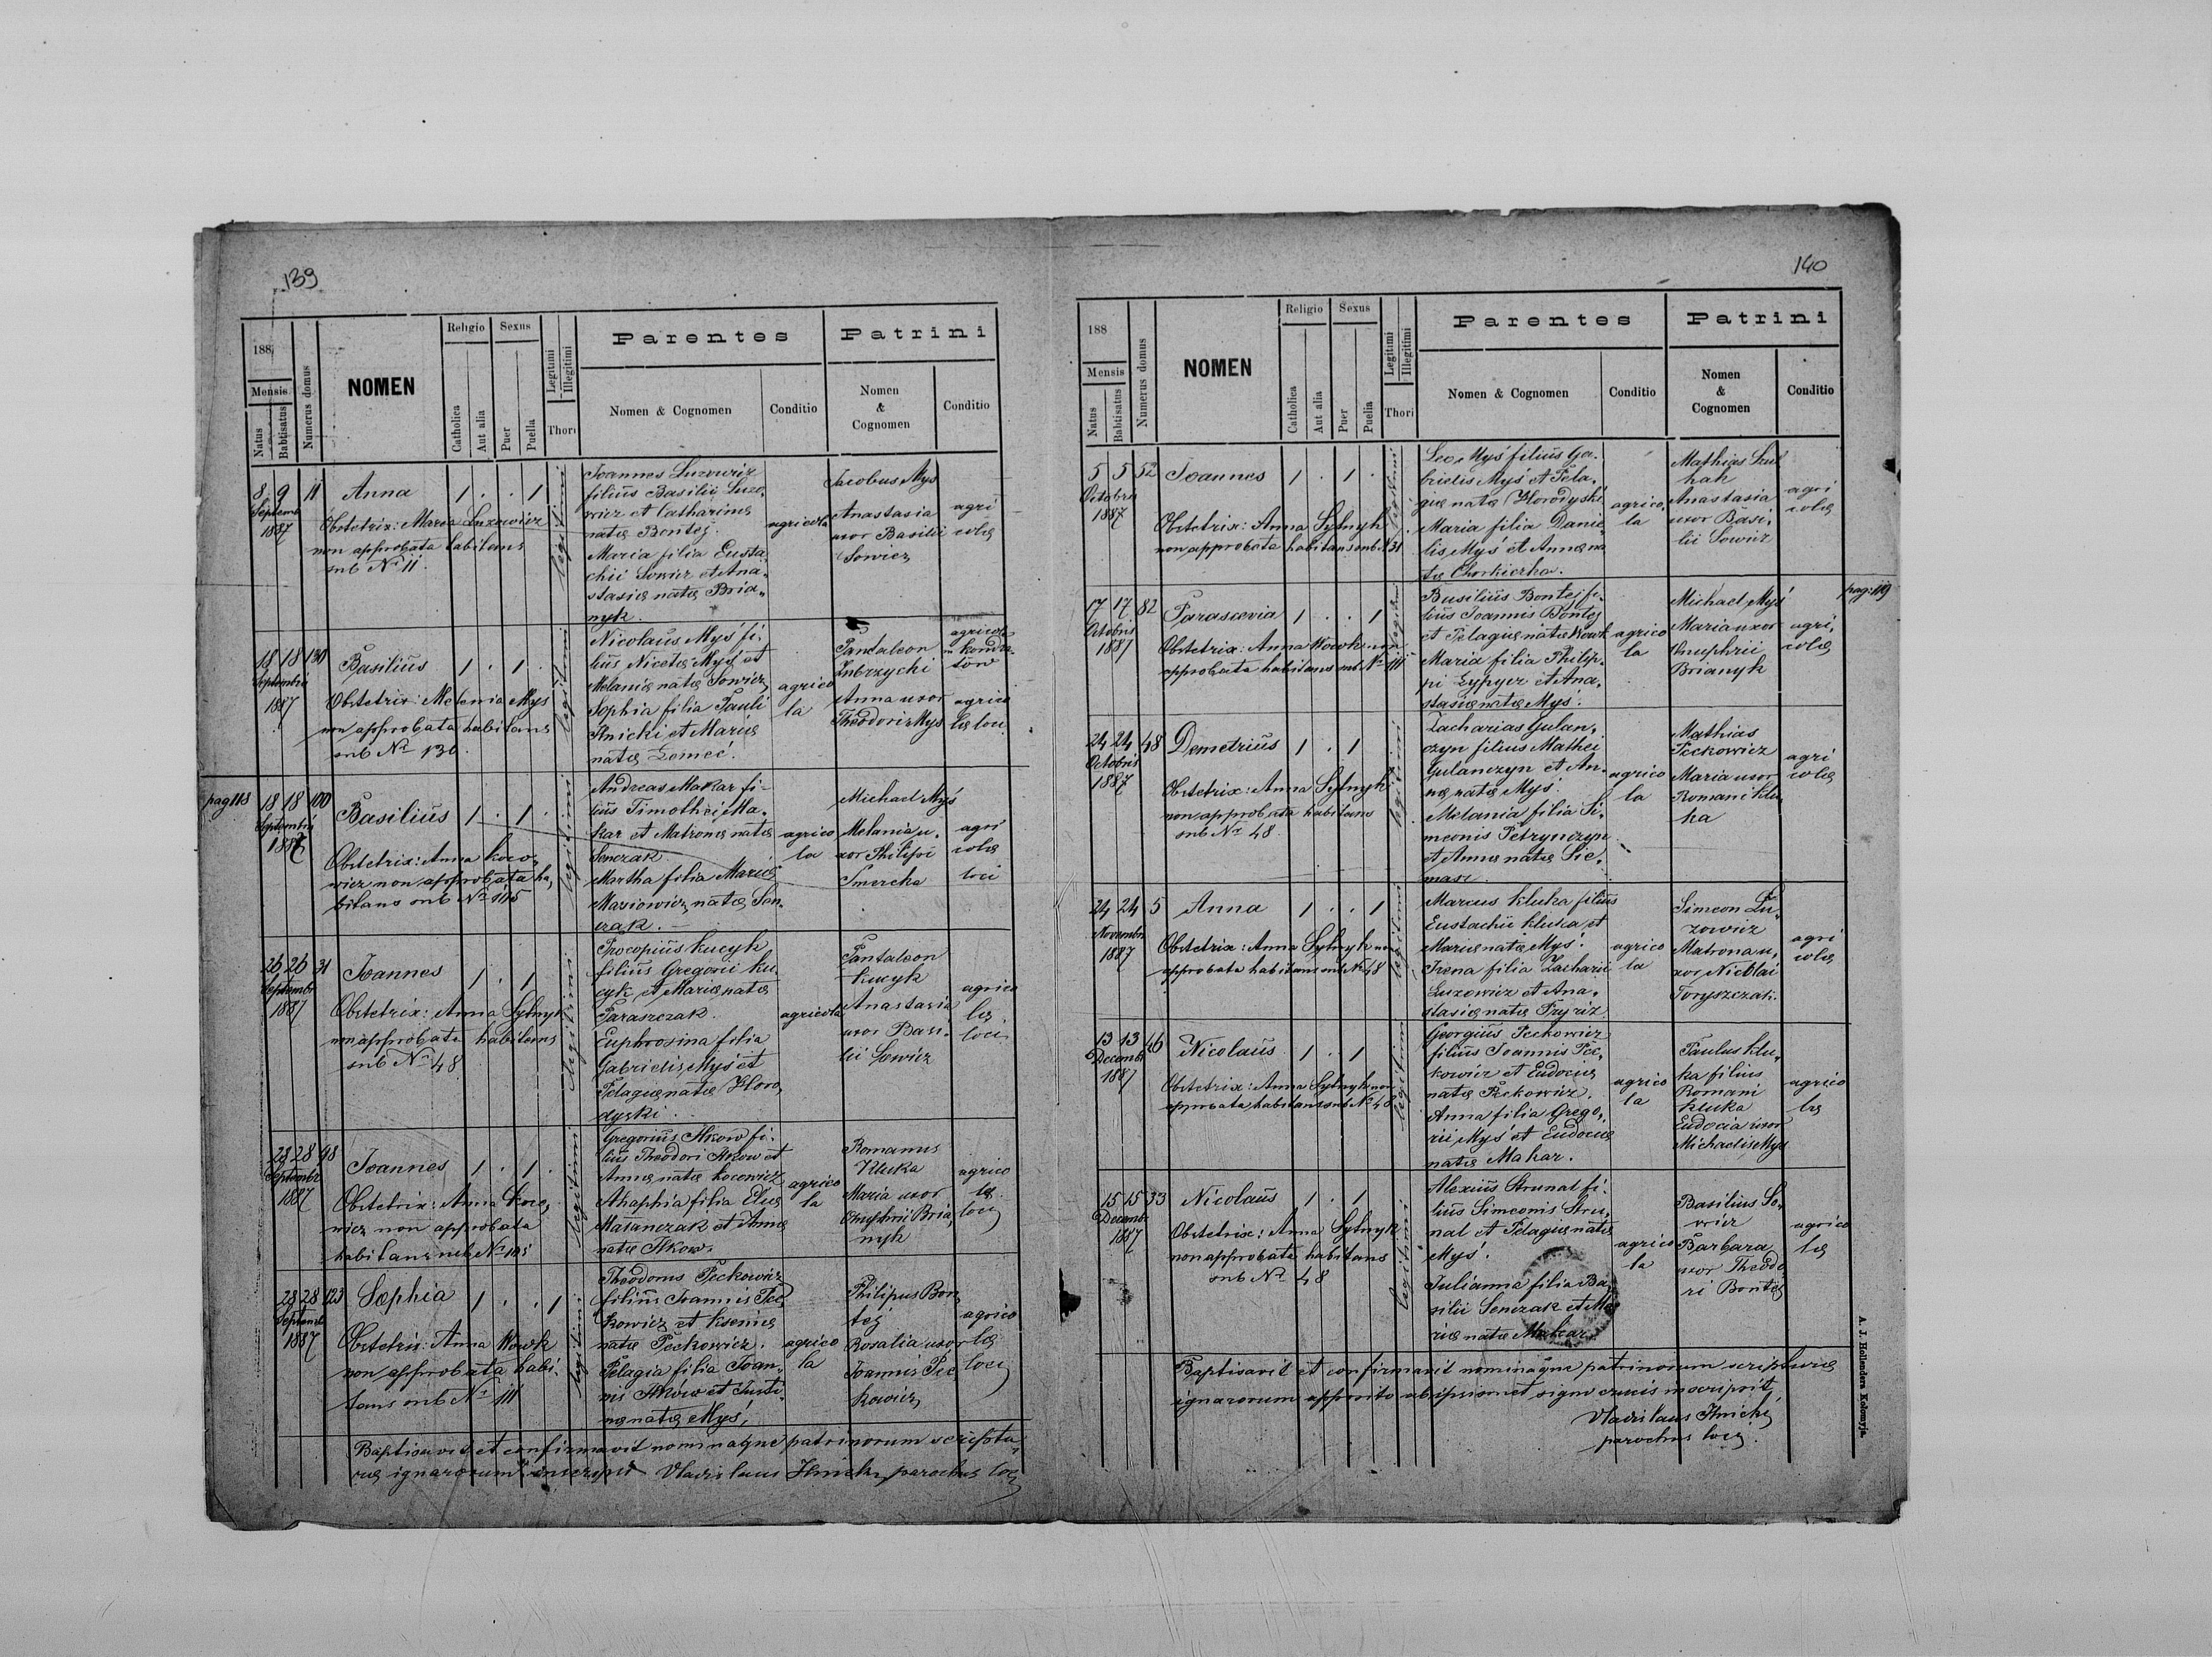 139
188
Mensis
Natus
Babtisatus
Numerus domus
NOMEN
Religio
Catholica
Aut alia
Sexus
Puer
Puella
Legitimi
Illegitimi
Thori
Parentes
Nomen & Cognomen
Conditio
Patrini
Nomen
&
Cognomen
Conditio
8 9 11 Anna 1 . . 1
Septemb
1887
Obstetrix: Maria Luzowicz
non approbata habitans
sub Nr 11.
legitimi
Joannes Luzowicz
filius Basilii Luzo,
wicz et Catharinæ
natæ Bontej.
Maria filia Eusta,
chii Sowicz et Ana,
stasiæ natæ Bria,,
nyk.
agricola
Jacobus Mys
Anastasia
uxor Basilii
Sowicz
agri
colæ
18 18 130 Basilius 1 . 1 .
Septembris
1887
Obstetrix: Melania Mys
non approbata habitans
sub Nr 130.
legitimi
Nicolaus Myś fi,
lius Nicetæ Myś et
Melaniæ natæ Sowicz,
Sophia filia Pauli
Ilnicki et Mariæ
natæ Łomeć.
agrico
la
Pantaleon
Zubrzycki
Anna uxor
Theodori Mys
agrico
læ loci
pag 118
18 18 100 Basilius 1 . 1 .
Septembris
1887
Obstetrix: Anna Koco,
wicz non approbata ha,
bitans sub Nr 115
legitimi
Andreas Makar fi-
lius Timothei Ma,
kar et Matronæ natæ
Senczak
Martha filia Mariæ
Mariowicz natæ Sen,
czak. -
agrico
la
Michael Myś
Melania u,
xor Philipi
Smercka
agri
colæ
loci
26 26 31 Joannes 1 . 1
Septembr
1887
Obstetrix: Anna Sytnyk
non approbata habitans
sub Nr 48
legitimi
Procopius Kucyk
filius Gregorii Ku
cyk et Mariæ natæ
Paraszczak.
Euphrosina filia
Gabrielis Myś et
Pelagiæ natæ Horo,
dyski.
agricola
Pantaleon
Kucyk
Anastasia
uxor Basi,
lii Sowicz
agrico
læ.
loci
28 28 98 Joannes 1 . 1 .
Septembr
1887
Obstetrix: Anna Koco,
wicz non approbata
habitans sub Nr 115
legitimi
Gregorius Ilkow fi,
lius Theodori Ilkow et
Annæ natæ Kocowicz
Ahaphia filia Eliæ
Matanczak et Annæ
natæ Ilkow.
agrico
la
Romanus
Kluka
Maria uxor
Onuphrii Bria,
nyk
agrico
læ.
loci
28 28 123 Sophia 1 . . 1
Septemb
1887
Obstetrix: Anna Wowk
non approbata habi,
tans sub Nr 111
legitimi
Theodorus Peckowicz
filius Joannis Pec
kowicz et Kseniæ
natæ Peckowicz.
Pelagia filia Joan,
nis Ilków et Justi,
næ natæ Myś,
agrico
la
Philipus Bon,
tej
Rosalia uxor
Joannis Pec
kowicz,
agrico
læ
loci
Baptisavit et confirmavit nominaque patrinorum scriptu,
ræ ignarorum inscripsi Vladislaus Ilnicki, parochus loci
140
188
Mensis
Natus
Babtisatus
Numerus domus
NOMEN
Religio
Catholica
Aut alia
Sexus
Puer
Puella
Legitimi
Illegitimi
Thori
Parentes
Nomen & Cognomen
Conditio
Patrini
Nomen
&
Cognomen
Conditio
5 5 52 Joannes 1 . 1 .
Octobris
1887
Obstetrix: Anna Sytnyk
non approbata habitans sub Nr 31
legitimi
Leo Myś filius Ga,
brielis Myś et Pela,
giæ natæ Horodyski
Maria filia Danie
lis Myś et Annæ na
tæ Chorkierka.
agrico,
la
Mathias
Anastasia
uxor Basi,
lii Sowicz
agri
colæ
pag: 119
17 17 82 Parascevia 1 . . 1
Octobris
1887
Obstetrix: Anna Wowk non
approbata habitans sub Nr 111
legitimi
Basilius Bontej fi,
lius Joannis Bontej
et Pelagiæ natæ Kowk
Maria filia Philip,
pi Łypyer et Ana,
stasiæ natæ Myś.
agrico
la
Michael Myś
Maria uxor
Onuphrii
Brianyk
agri,
colæ
24 24 48 Demetrius 1 . 1
Octobris
1887
Obstetrix: Anna Sytnyk
non approbata habitans
sub Nr 48
legitimi
Zacharias Gulan,
czyn filius Mathei
Gulanczyn et An,
næ natæ Myś.
Melania filia Si,
meonis Petrynczyn
et Annæ natæ Sie,
masz.
agrico
la
Mathias
Peckowicz
Maria uxor
Romani Klu,
ka
agri
colæ
24 24 5 Anna 1 . . 1
Novembr
1887
Obstetrix: Anna Sytnyk non
approbata habitans sub Nr 48
legitimi
Marcus Kluka filius
Eustachii Kluka et
Mariæ natæ Myś.
Irena filia Zacharii
Luzowicz et Ana,
stasiæ natæ Pryriz
agrico
la
Simeon Lu,
zowicz
Matrona u,
xor Nicolai
Toryszczak.
agri
colæ
13 13 46 Nicolaus 1 . 1
Decemb
1887
Obstetrix: Anna Sytnyk non
approbata habitans sub Nr 48
legitimi
Georgius Peckowicz
filius Joannis Pec,
kowicz et Eudociæ
natæ Peckowicz.
Anna filia Grego,
rii Myś et Eudociæ
natæ Makar.
agrico
la
Paulus Klu,
ka filius
Romani
Kluka
Eudocia uxor
Michaelis Mys
agrico
læ
15 15 33 Nicolaus 1 . 1
Decemb
1887
Obstetrix: Anna Sytnyk
non approbata habitans
sub Nr 48
legitimi
Alexius Strunal fi,
lius Simeonis Stru,
nal et Pelagiæ natæ
Myś.
Julianna filia Ba,
silii Senczak et Ma
riæ natæ Makar
agrico
la
Basilius So,
wicz
Barbara
uxor Theodo
ri Bontej
agrico
læ
Baptisavit et confirmavit nominaque patrinorum scripturæ
ignarorum apposito abipsismet signo crucis inscripsit,
Vladislaus Ilnicki,
parochus loci.
A. J. Hollendera Kołomyja.